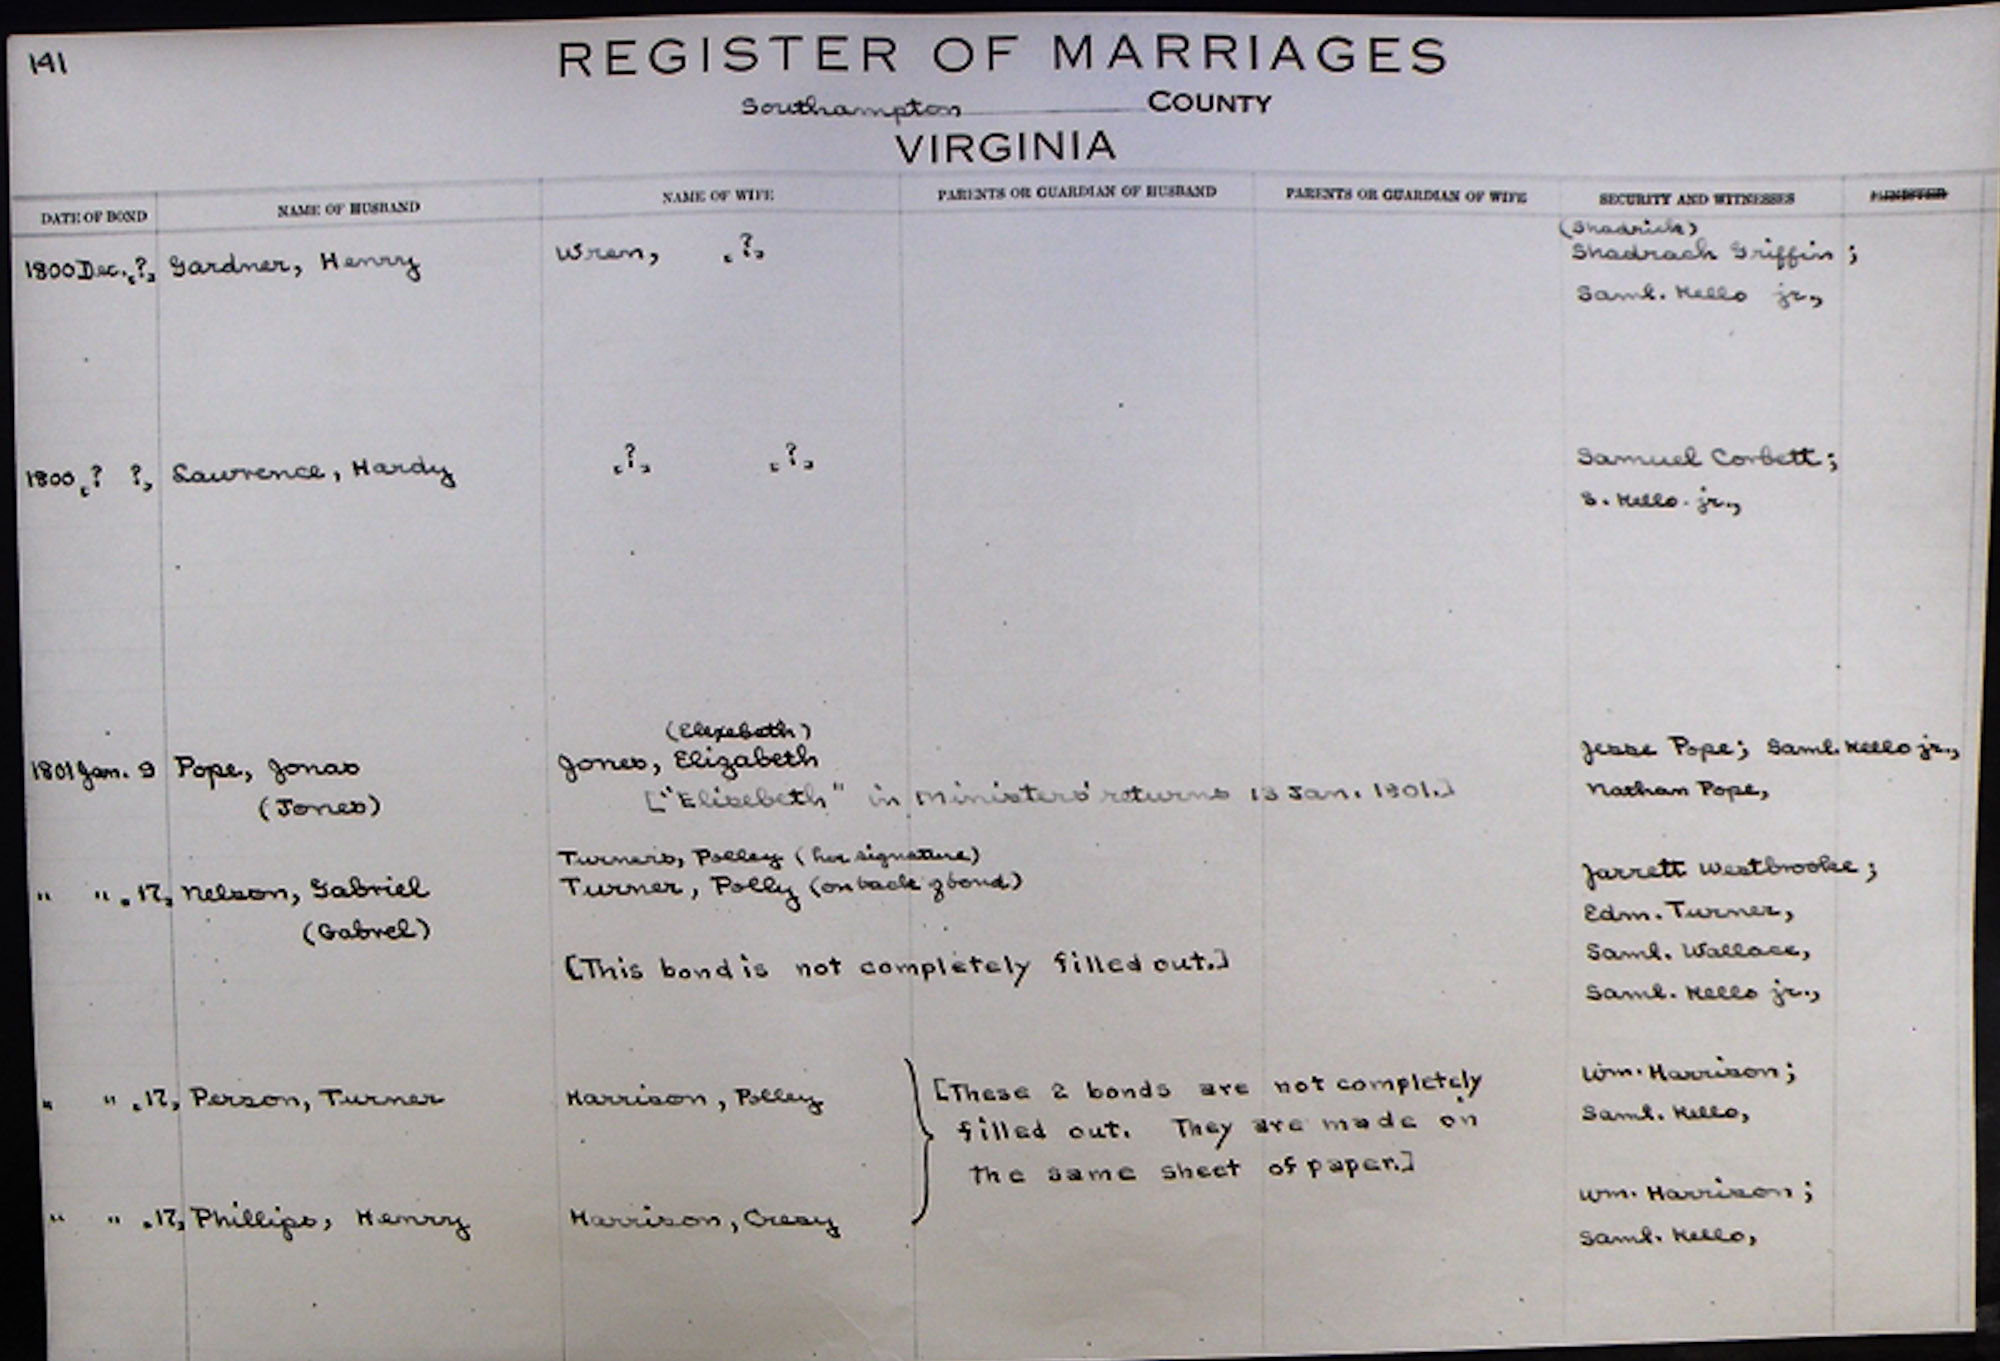 141
REGISTER OF MARRIAGES
Southampton COUNTY
VIRGINIA
DATE OF BOND NAME OF HUSBAND NAME OF WIFE PARENTS OR GUARDIAN OF HUSBAND PARENTS OR GUARDIAN OF WIFE SECURITY AND WITNESSES MINISTER
(Shadrick)
1800 Dec. [?] Gardner, Henry Wren, [?] Shadrach Griffin;
Saml. Kello jr.,
1800 [? ?] Lawrence, Hardy [?] [?] Samuel Corbett;
S. Kello jr.,
(Elexebath)
1801 Jan. 9 Pope, Jonas Jones, Elizabeth Jesse Pope; Saml. Kello jr.,
(Jones) ["Elisebeth" in Ministers' returns 13 Jan. 1801.] Nathan Pope,
Turners, Polley (her signature)
" " [17] Nelson, Gabriel Turner, Polly (on back of bond) Jarrett Westbrooke;
(Gabrel) Edm. Turner,
[This bond is not completely filled out.] Saml. Wallace,
Saml. Kello jr.,
" " [17] Person, Turner Harrison, Polley [These 2 bonds are not completely Wm. Harrison;
filled out. They are made on Saml. Kello,
the same sheet of paper.]
" " [17] Phillips, Henry Harrison, Cresy Wm. Harrison;
Saml. Kello,